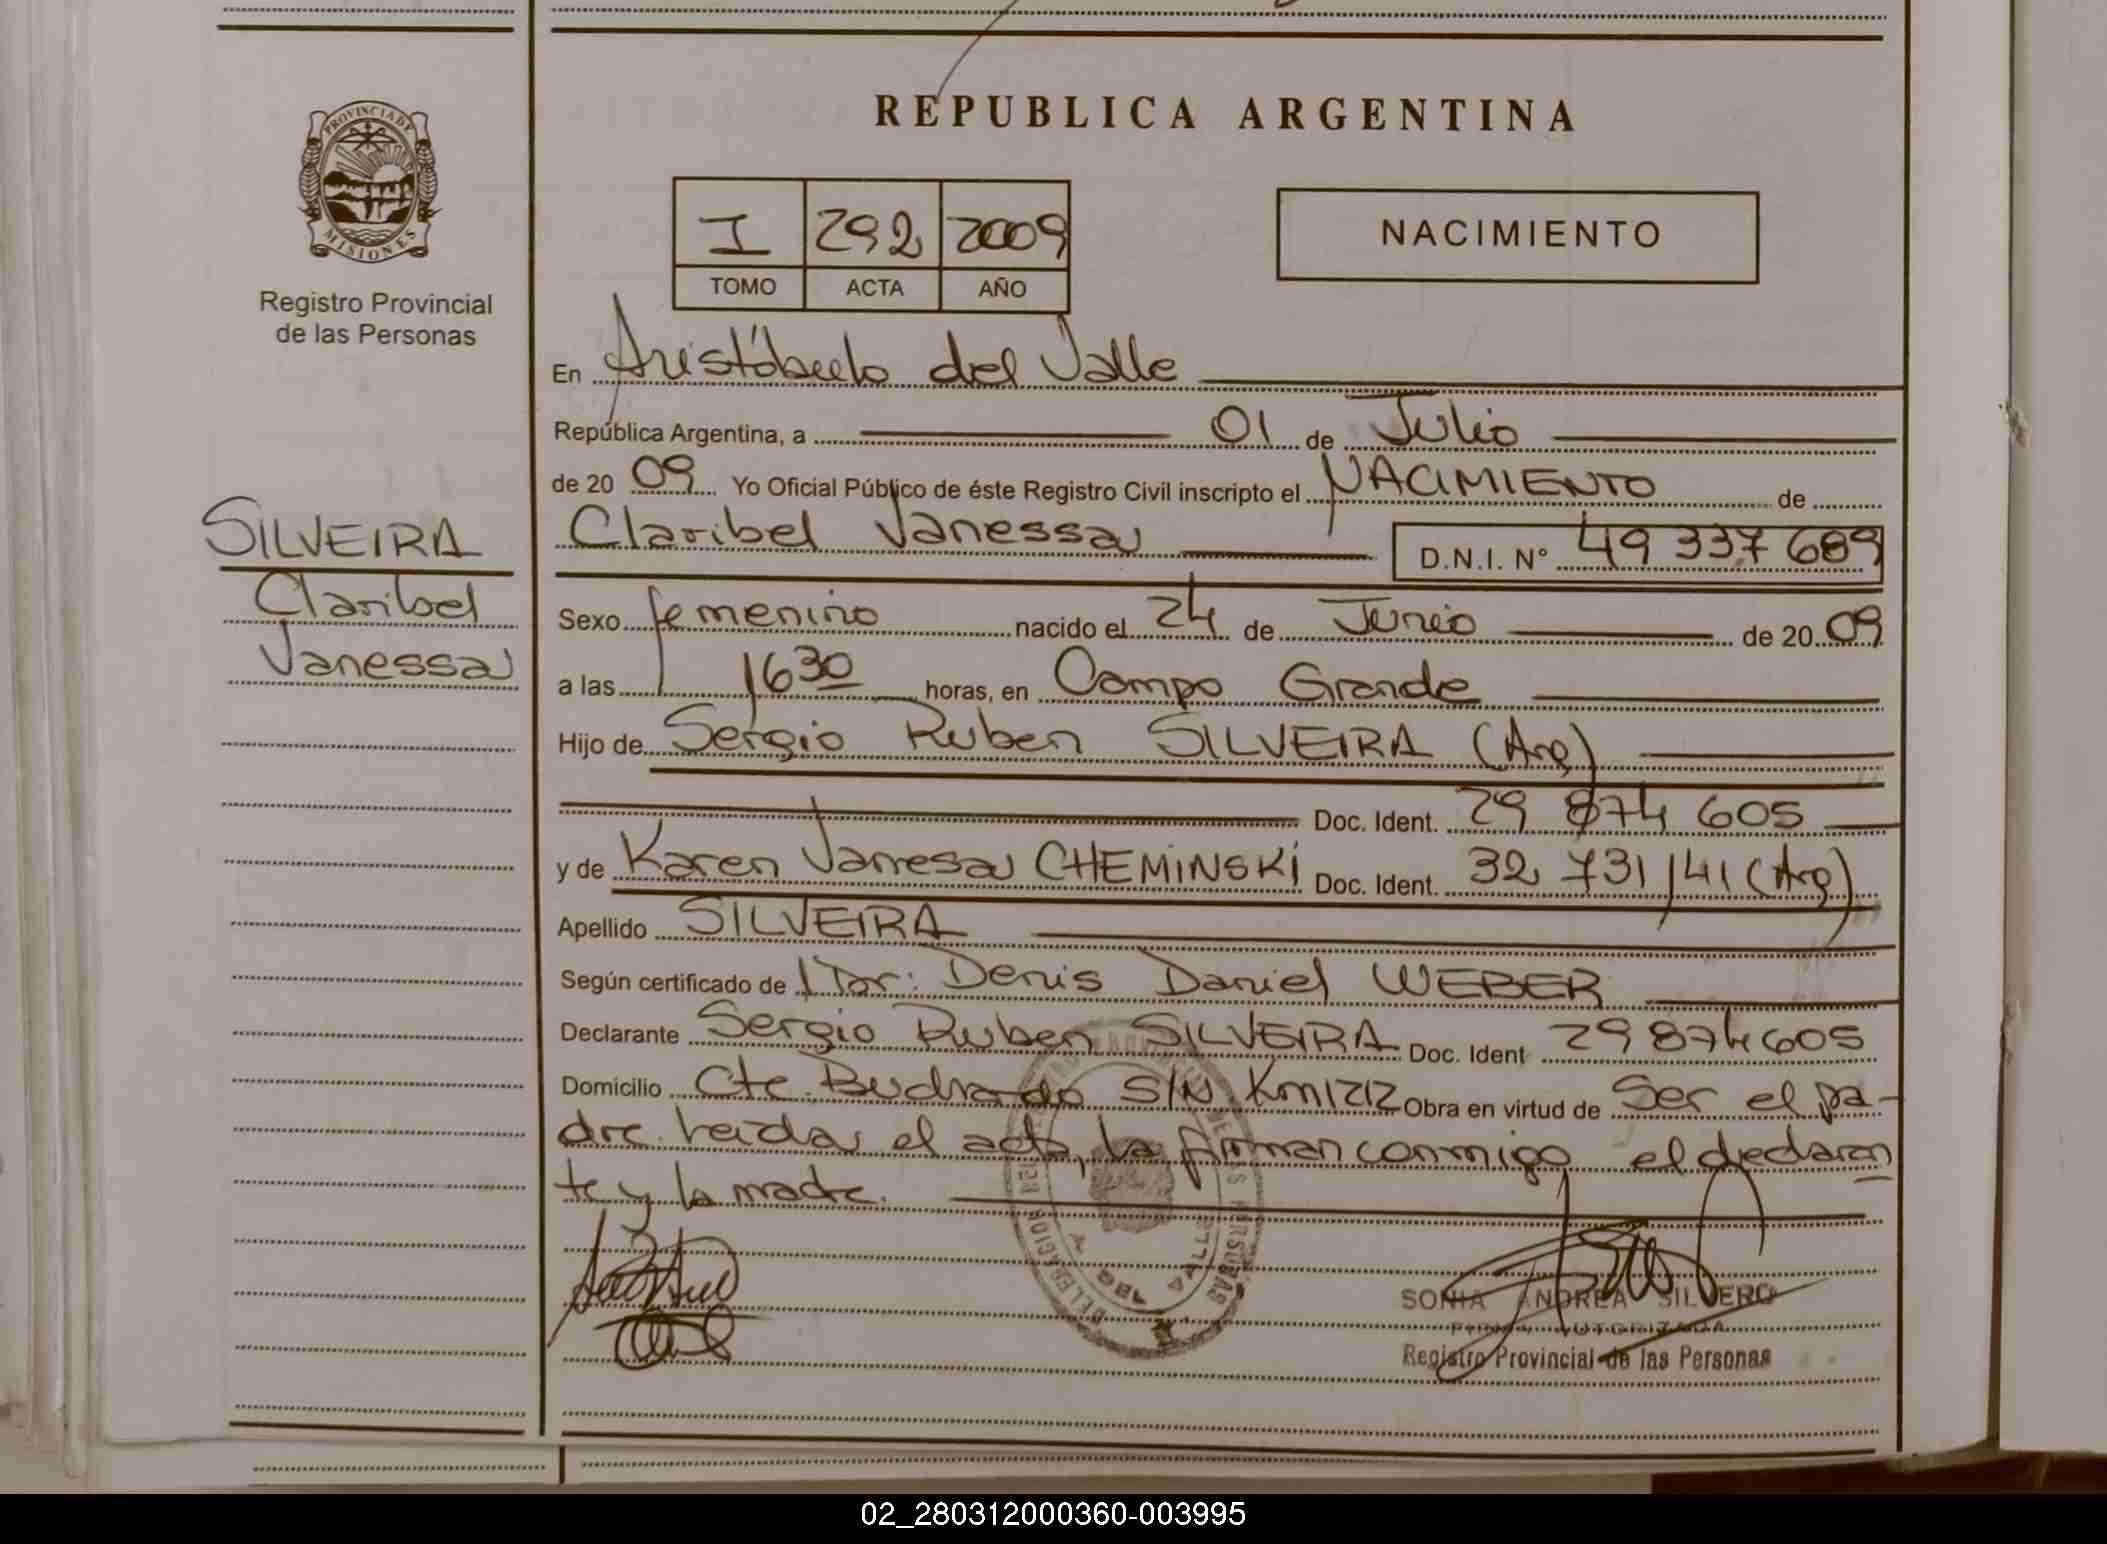 REPUBLICA ARGENTINA
PROVINCIA DE
MISIONES
Registro Provincial
de las Personas
I 292 2009
TOMO ACTA AÑO
NACIMIENTO
En Aristóbulo del Valle
República Argentina, a 01 de Julio
de 20 09 Yo Oficial Público de éste Registro Civil inscripto el NACIMIENTO de
SILVEIRA
Claribel
Vanessa
Claribel Vanessa D.N.I. Nº 49 337 689
Sexo femenino nacido el 24 de Junio de 20 09
a las 16 30 horas, en Campo Grande
Hijo de Sergio Ruben SILVEIRA (Arg)
Doc. Ident. 29 874 605
y de Karen Vanesa CHEMINSKI Doc. Ident. 32 731 141 (Arg)
Apellido SILVEIRA
Según certificado de l Dr: Denis Daniel WEBER
Declarante Sergio Ruben SILVEIRA Doc. Ident 29 874 605
Domicilio Cte. S/N Km 1212 Obra en virtud de Ser el pa-
dre. Leida el acta, la firman conmigo el declaran
te y la madre.
SONIA ANDREA SILVERO
FIRMA AUTORIZADA
Registro Provincial de las Personas
02_280312000360-003995